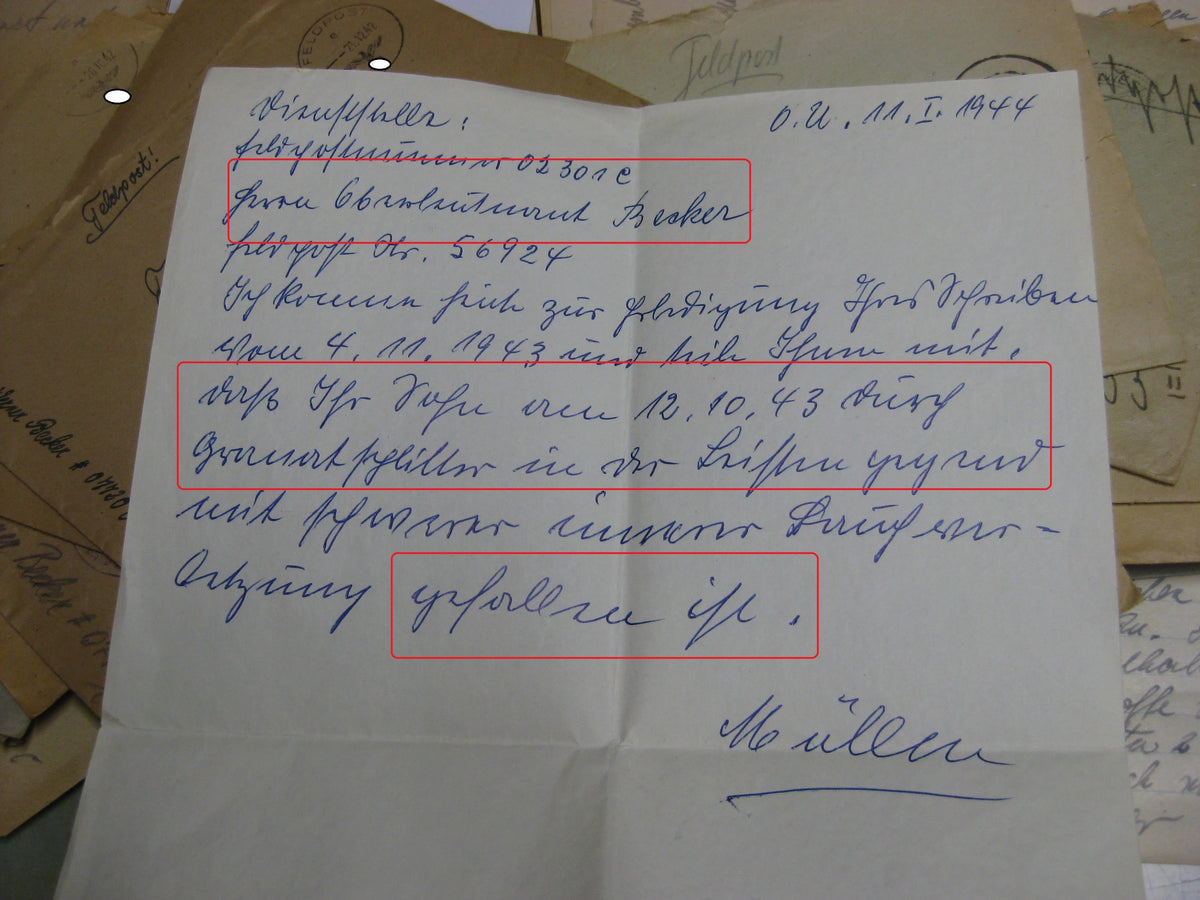 Feldpost
FELDPOST
Feldpost!
Dienststelle:
O.U. 11.I.1944
Feldpostnummer 02301 C
Herrn Oberleutnant Becker
Feldpost Nr. 56924
Ich komme heute zur Erledigung Ihres Schreiben
vom 4.11.1943 und teile Ihnen mit,
daß Ihr Sohn am 12.10.43 durch
Granatsplitter in der Leistengegend
mit schwerer innerer Bauchver-
letzung gefallen ist.
Müller